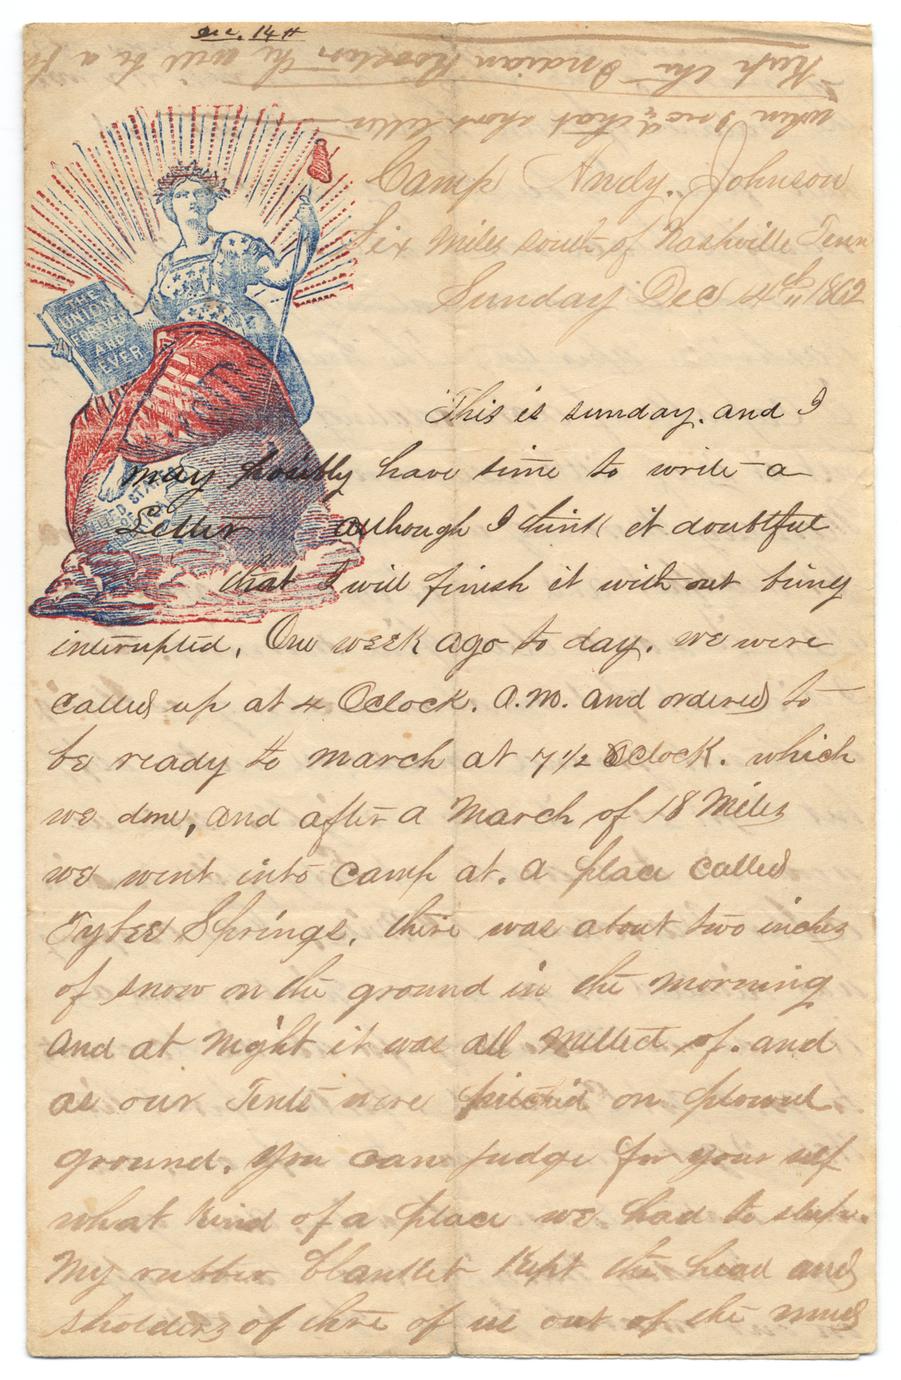 Dec. 14th
Keep the Indian Rooster he will be a
when I rec'd that short letter
Camp Andy. Johnson
Six Miles south of Nashville Tenn
Sunday Dec 14th 1862
THE
UNION
FOREVER
AND
EVER
This is sunday. and I
may possibly have time to write a
UNITED STATES
OF
Letter although I think it doubtful
that I will finish it with out being
interupted. One week ago to day. we were
called up at 4 Oclock. A.M. and ordered to
be ready to march at 7 1/2 Oclock. which
we done, and after a March of 18 Miles
we went into camp at. a place called
Tybee Springs. there was about two inches
of snow on the ground in the morning
and at Night it was all Melted of. and
as our Tents were pitched on plowed
ground. you can judge for your self
what kind of a place we had to sleep.
My rubber blanket kept the head and
sholders of three of us out of the mud